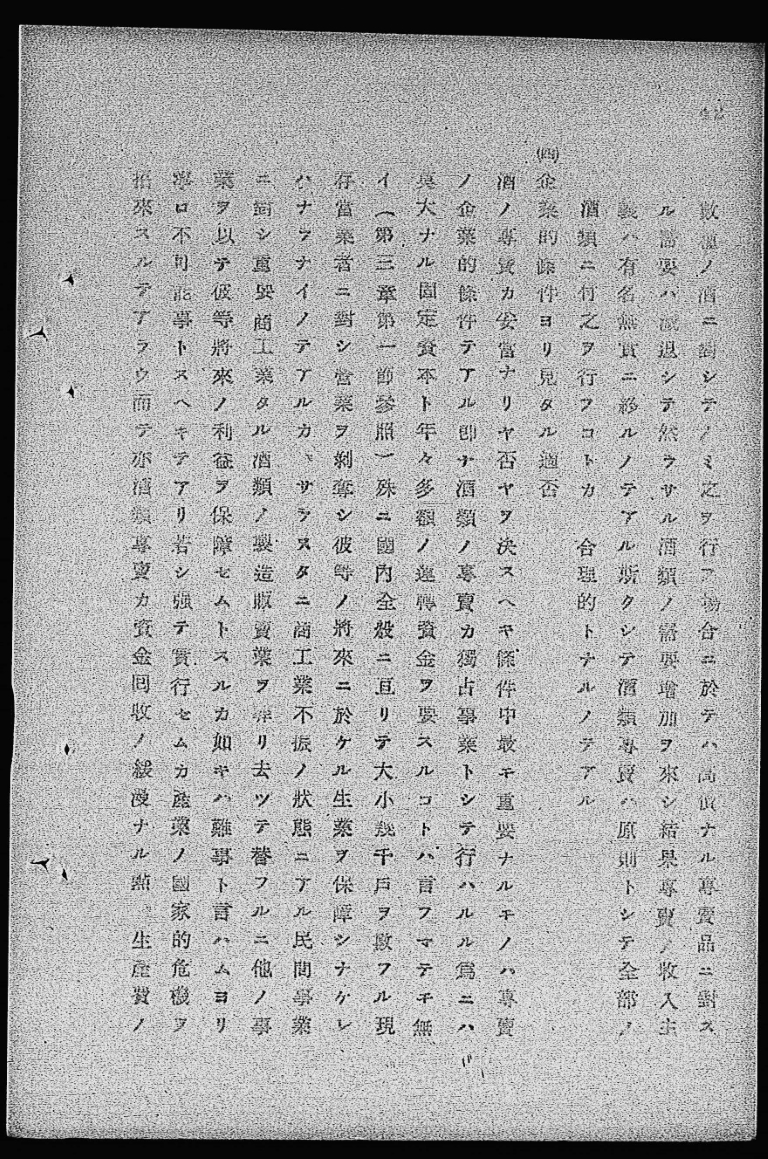 42
數種ノ酒ニ對シテノミ之ヲ行フ場合ニ於テハ高價ナル專賣品ニ對ス
ル需要ハ減退シテ然ラサル酒類ノ需要增加ヲ來シ結果專賣ノ收入主
義ハ有名無實ニ終ルノテアル斯クシテ酒類專賣ハ原則トシテ全部ノ
酒類ニ付之ヲ行フコトカ 合理的トナルノテアル
㈣企業的條件ヨリ見タル適否
酒ノ專賣カ妥當ナリヤ否ヤヲ決スヘキ條件中最モ重要ナルモノハ專賣
ノ企業的條件テアル卽チ酒類ノ專賣カ獨占事業トシテ行ハルル爲ニハ
莫大ナル固定資本ト年々多額ノ運轉資金ヲ要スルコトハ言フマテモ無
イ(第三章第一節參照)殊ニ國內全般ニ亘リテ大小幾千戶ヲ數フル現
存當業者ニ對シ營業ヲ剝奪シ彼等ノ將來ニ於ケル生業ヲ保障シナケレ
ハナラナイノテアルカ、サラヌタニ商工業不振ノ狀態ニアル民間事業
ニ對シ重要商工業タル酒類ノ製造販賣業ヲ奪リ去ツテ替フルニ他ノ事
業ヲ以テ彼等將來ノ利益ヲ保障セムトスルカ如キハ難事ト言ハムヨリ
寧ロ不可能事トスヘキテアリ若シ強テ實行セムカ產業ノ國家的危機ヲ
招來スルテアラウ而テ亦酒類專賣カ資金回收ノ緩漫ナル點 生產費ノ